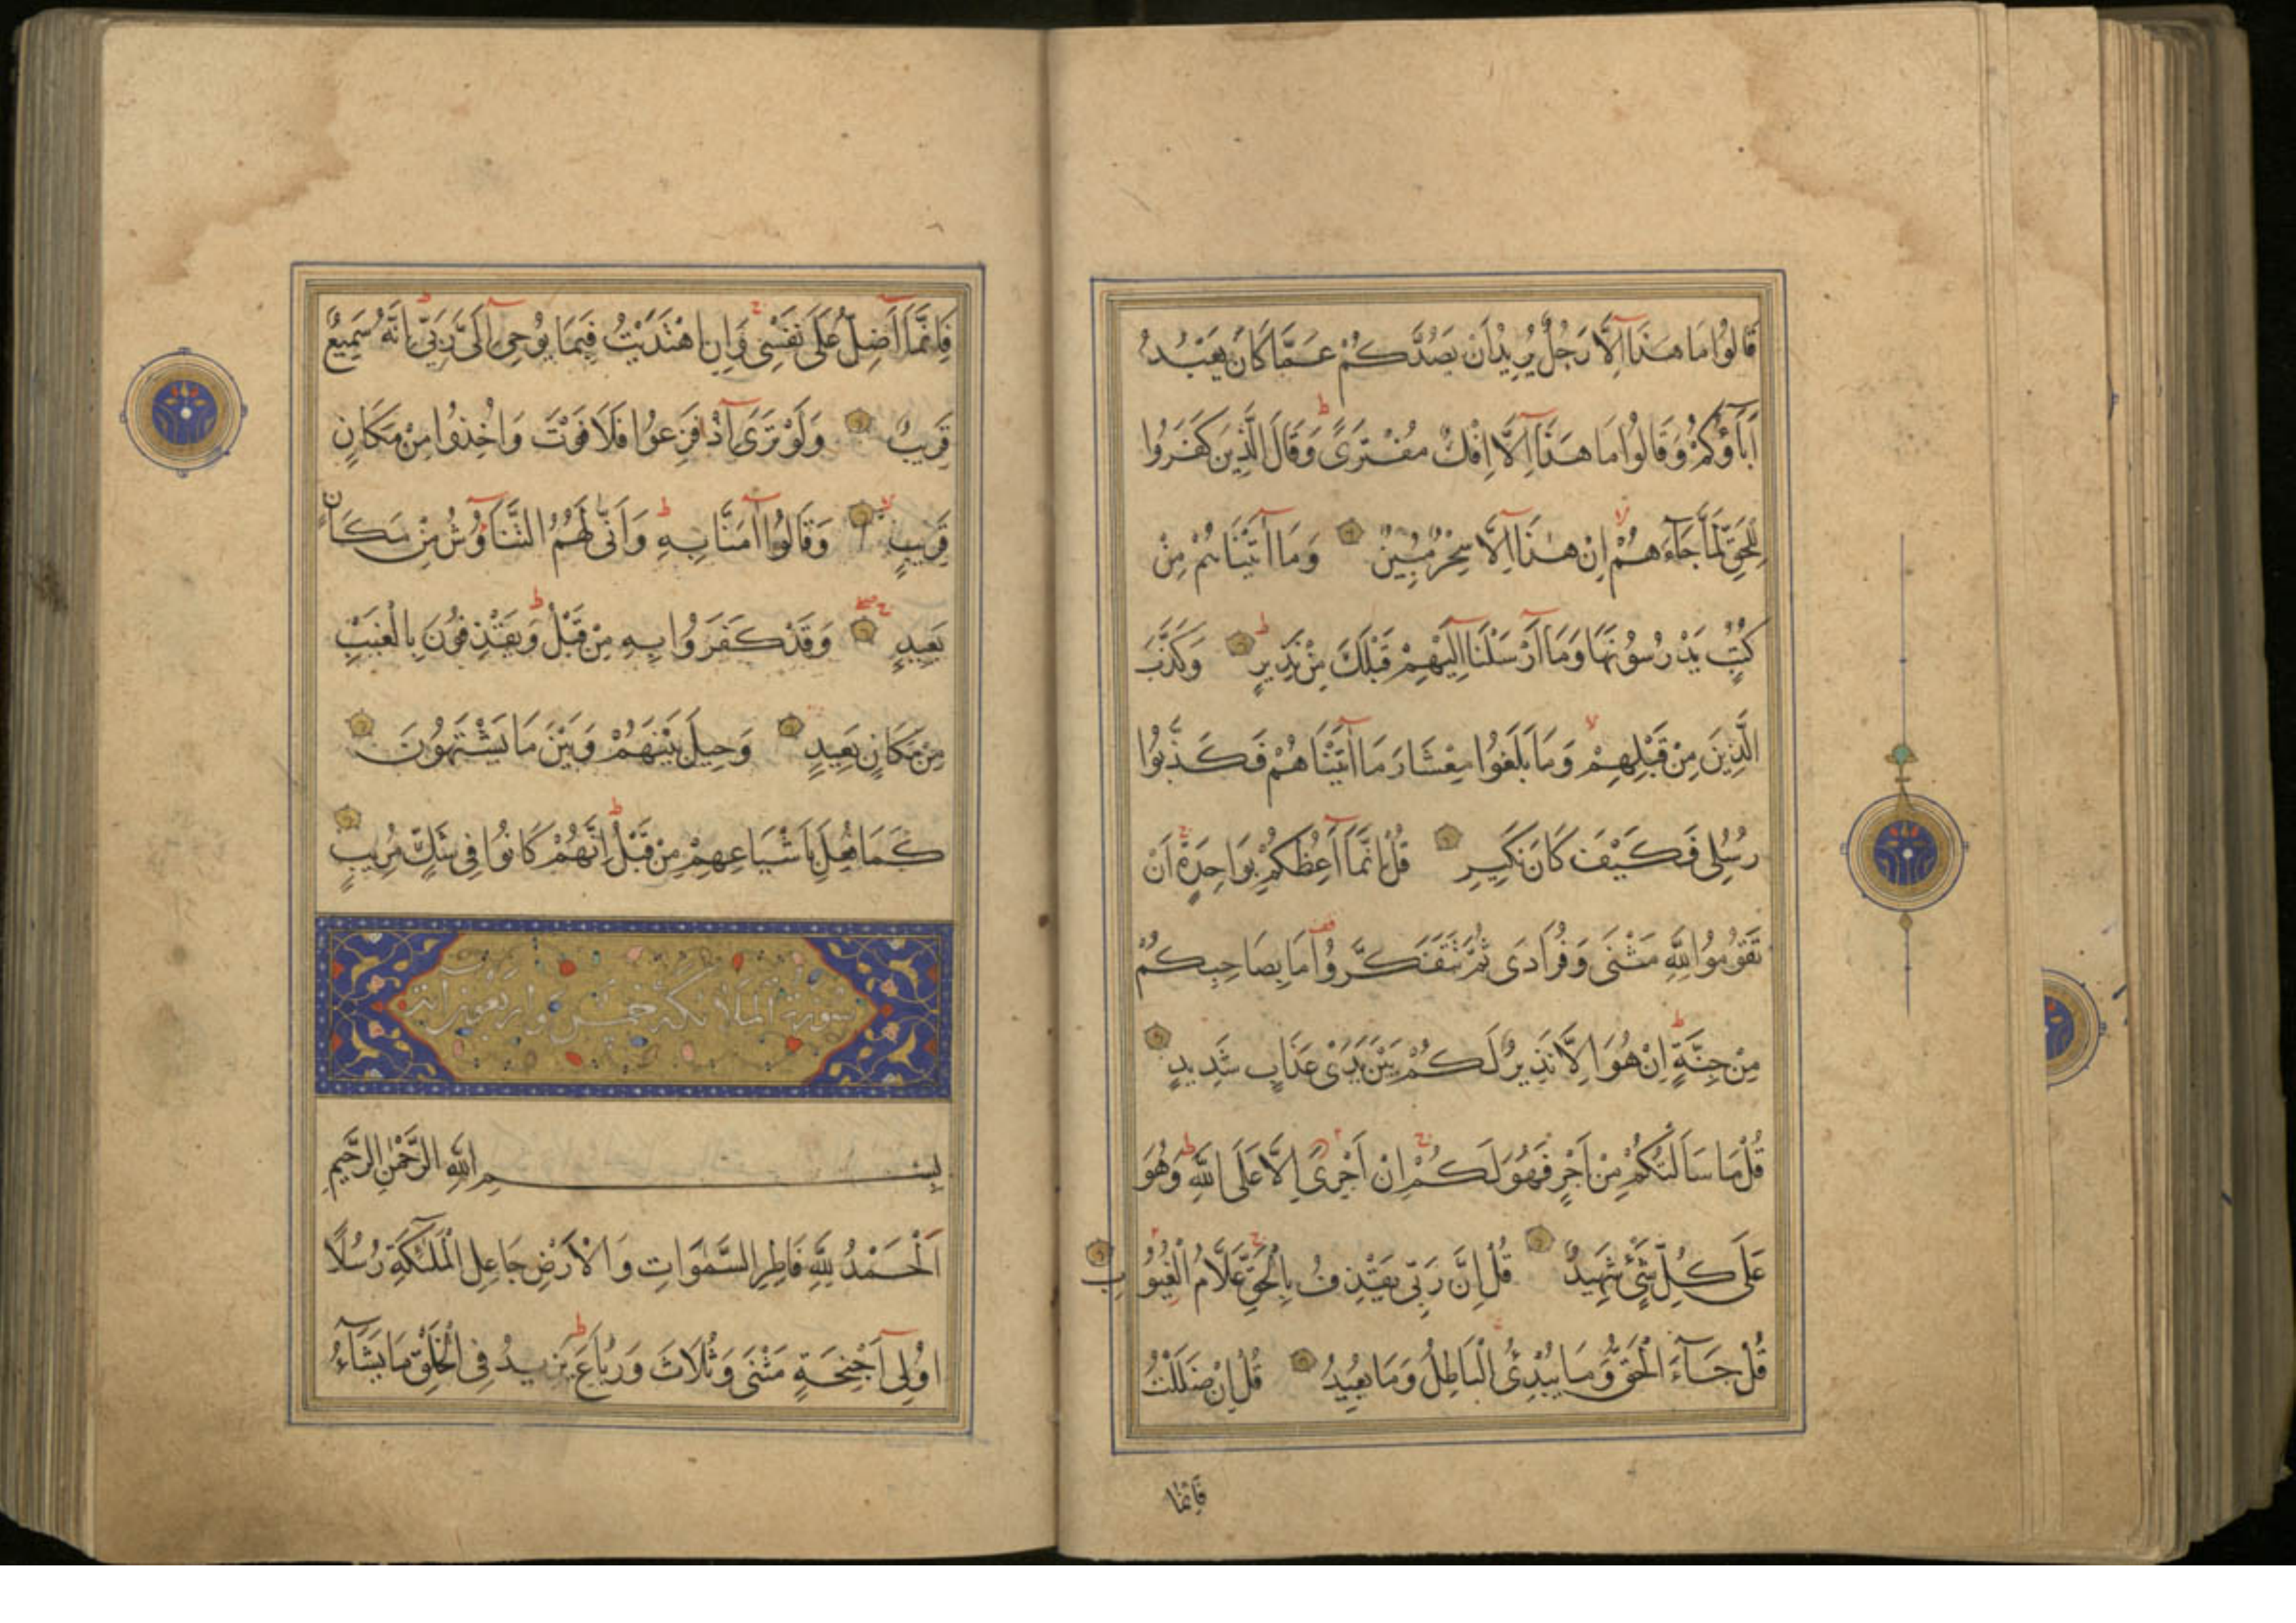 قَالُوا مَا هَذَا إِلَّا رَجُلٌ يُرِيدُ أَنْ يَصُدَّكُمْ عَمَّا كَانَ يَعْبُدُ
آبَاؤُكُمْ وَقَالُوا مَا هَذَا إِلَّا إِفْكٌ مُفْتَرًى وَقَالَ الَّذِينَ كَفَرُوا
لِلْحَقِّ لَمَّا جَاءَهُمْ إِنْ هَذَا إِلَّا سِحْرٌ مُبِينٌ وَمَا آتَيْنَاهُمْ مِنْ
كُتُبٍ يَدْرُسُونَهَا وَمَا أَرْسَلْنَا إِلَيْهِمْ قَبْلَكَ مِنْ نَذِيرٍ وَكَذَّبَ
الَّذِينَ مِنْ قَبْلِهِمْ وَمَا بَلَغُوا مِعْشَارَ مَا آتَيْنَاهُمْ فَكَذَّبُوا
رُسُلِي فَكَيْفَ كَانَ نَكِيرِ قُلْ إِنَّمَا أَعِظُكُمْ بِوَاحِدَةٍ أَنْ
تَقُومُوا لِلَّهِ مَثْنَى وَفُرَادَى ثُمَّ تَتَفَكَّرُوا مَا بِصَاحِبِكُمْ
مِنْ جِنَّةٍ إِنْ هُوَ إِلَّا نَذِيرٌ لَكُمْ بَيْنَ يَدَيْ عَذَابٍ شَدِيدٍ
قُلْ مَا سَأَلْتُكُمْ مِنْ أَجْرٍ فَهُوَ لَكُمْ إِنْ أَجْرِيَ إِلَّا عَلَى اللَّهِ وَهُوَ
عَلَى كُلِّ شَيْءٍ شَهِيدٌ قُلْ إِنَّ رَبِّي يَقْذِفُ بِالْحَقِّ عَلَّامُ الْغُيُوبِ
قُلْ جَاءَ الْحَقُّ وَمَا يُبْدِئُ الْبَاطِلُ وَمَا يُعِيدُ قُلْ إِنْ ضَلَلْتُ
فَإِنَّمَا
فَإِنَّمَا أَضِلُّ عَلَى نَفْسِي وَإِنِ اهْتَدَيْتُ فَبِمَا يُوحِي إِلَيَّ رَبِّي إِنَّهُ سَمِيعٌ
قَرِيبٌ وَلَوْ تَرَى إِذْ فَزِعُوا فَلَا فَوْتَ وَأُخِذُوا مِنْ مَكَانٍ
قَرِيبٍ وَقَالُوا آمَنَّا بِهِ وَأَنَّى لَهُمُ التَّنَاوُشُ مِنْ مَكَانٍ
بَعِيدٍ وَقَدْ كَفَرُوا بِهِ مِنْ قَبْلُ وَيَقْذِفُونَ بِالْغَيْبِ
مِنْ مَكَانٍ بَعِيدٍ وَحِيلَ بَيْنَهُمْ وَبَيْنَ مَا يَشْتَهُونَ
كَمَا فُعِلَ بِأَشْيَاعِهِمْ مِنْ قَبْلُ إِنَّهُمْ كَانُوا فِي شَكٍّ مُرِيبٍ
سورة الملائكة خمس واربعون اية
بِسْمِ اللَّهِ الرَّحْمَنِ الرَّحِيمِ
اَلْحَمْدُ لِلَّهِ فَاطِرِ السَّمَوَاتِ وَالْأَرْضِ جَاعِلِ الْمَلَئِكَةِ رُسُلًا
أُولِي أَجْنِحَةٍ مَثْنَى وَثُلَاثَ وَرُبَاعَ يَزِيدُ فِي الْخَلْقِ مَا يَشَاءُ